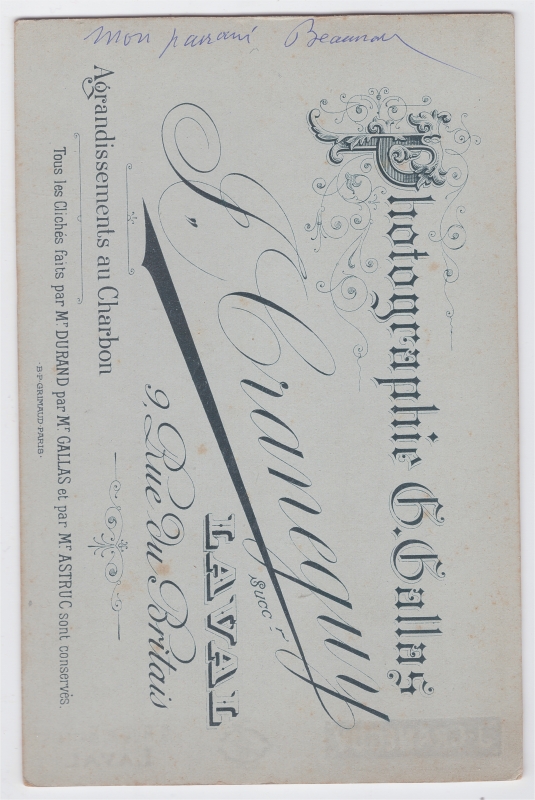 mon parrain Beaumor
Photographie G. Gallas
J. Craneguy
Succr
9, Rue du Britais
LAVAL
Agrandissements au Charbon
Tous les Clichés faits par Mr DURAND par Mr GALLAS et par Mr ASTRUC sont conservés.
·B·P·GRIMAUD·PARIS·
LAVAL